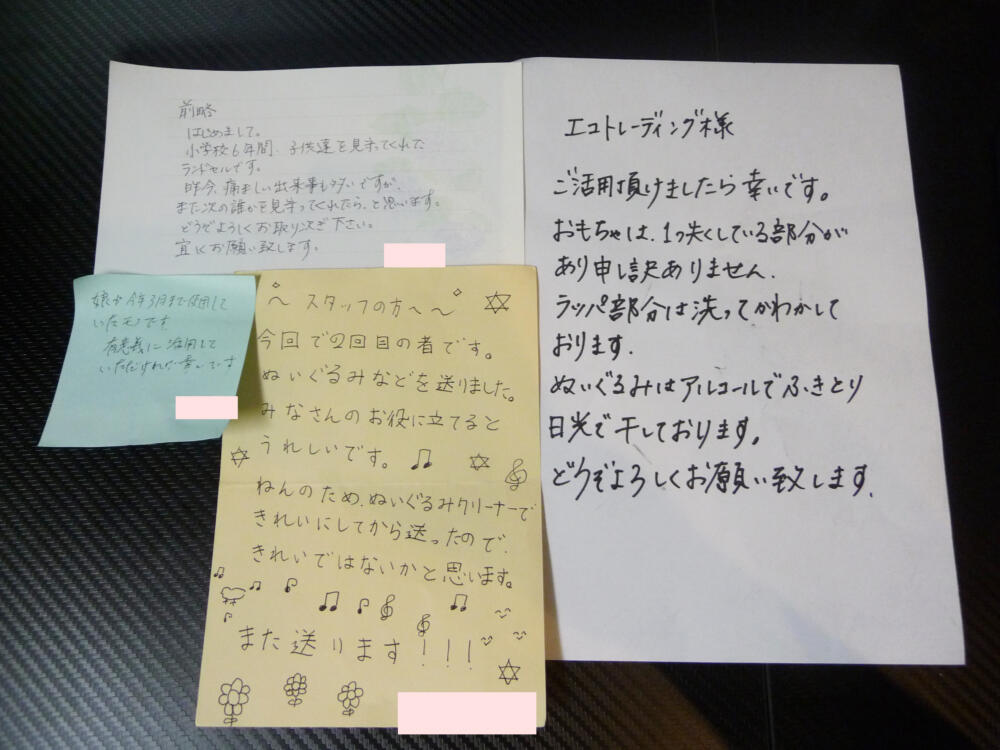 前略
はじめまして。
小学校6年間、子供達を見守ってくれた
ランドセルです。
昨今、痛ましい出来事も多いですが、
また次の誰かを見守ってくれたら、と思います。
どうぞよろしくお取り次ぎ下さい。
宜しくお願い致します。
娘が今年3月まで使用して
いたモノです
有意義に活用して
いただければ幸いです
〜スタッフの方へ〜
今回で2回目の者です。
ぬいぐるみなどを送りました。
みなさんのお役に立てると
うれしいです。
ねんのため、ぬいぐるみクリーナーで
きれいにしてから送ったので、
きれいではないかと思います。
また送ります!!!
エコトレーディング様
ご活用頂けましたら幸いです。
おもちゃは、1つ失くしている部分が
あり申し訳ありません.
ラッパ部分は洗ってかわかして
おります.
ぬいぐるみはアルコールでふきとり
日光で干しております。
どうぞよろしくお願い致します.